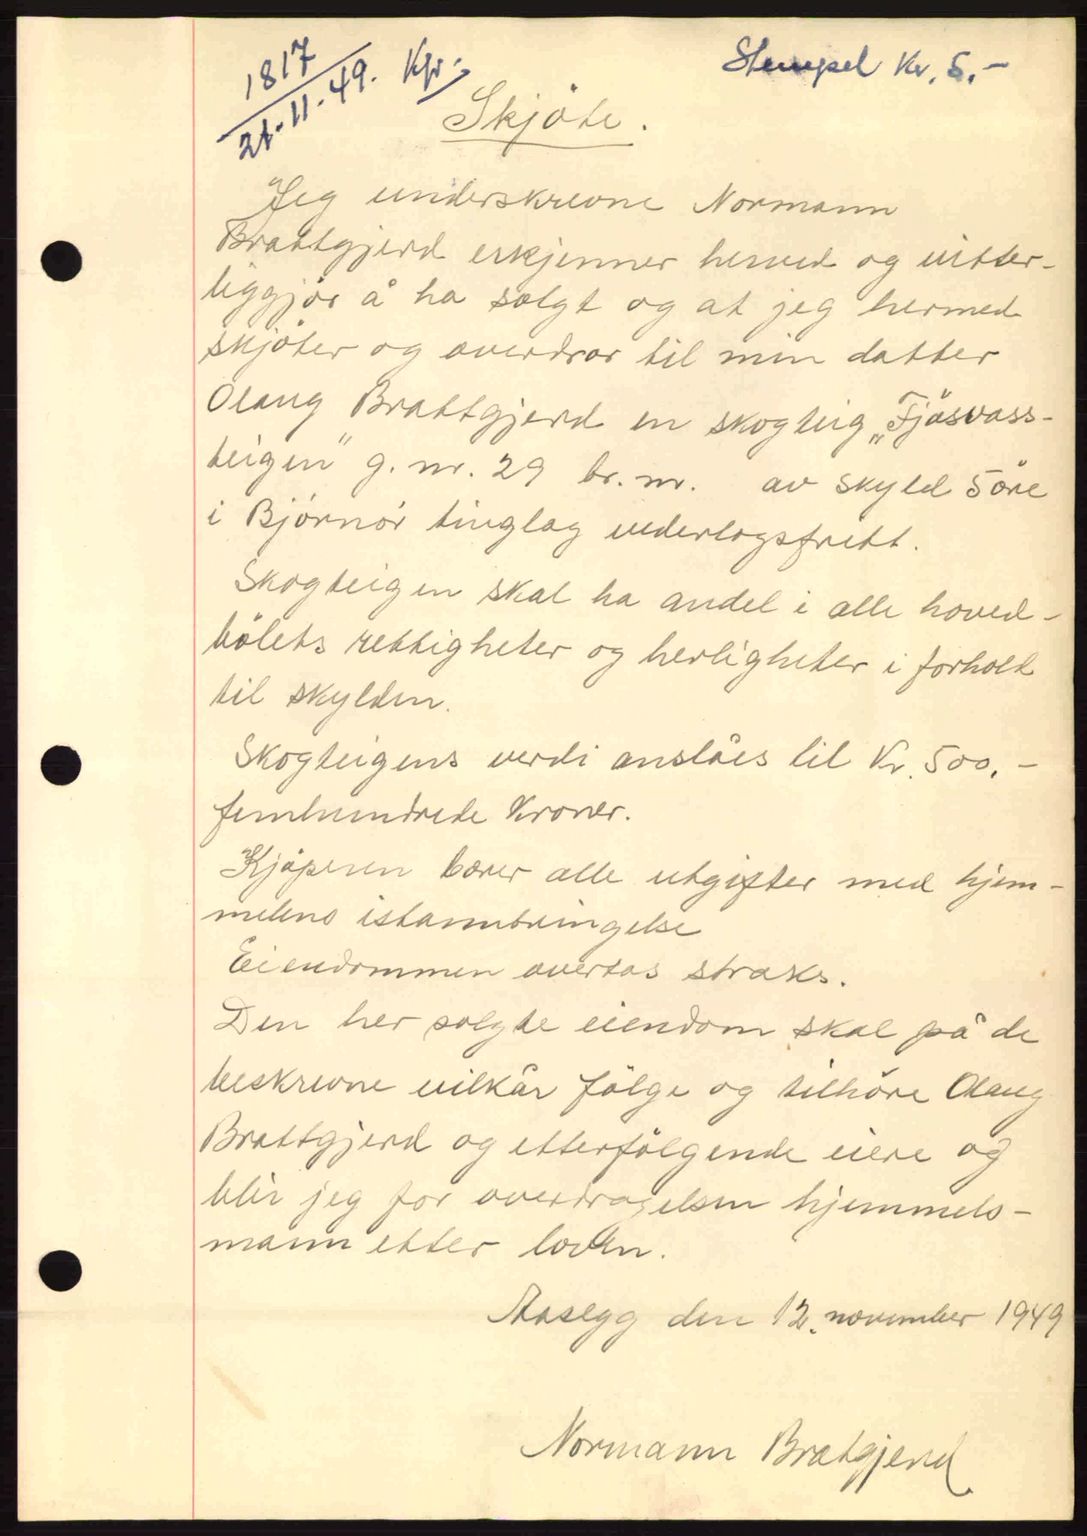 1817
21-11-49. Kfr.
Stempel Kr. 5.-
Skjöte.
Jeg underskrevne Normann
Brattgjerd erkjenner herved og vitter-
liggjör å ha solgt og at jeg hermed
skjöter og overdrar til min datter
Olaug Brattgjerd en skogteig „Fjösvass-
teigen" g. nr. 29 br. nr. av skyld 5 öre
i Björnör tinglag vederlagsfritt.
Skogteigen skal ha andel i alle hoved-
bölets rettigheter og herligheter i forhold
til skylden.
Skogteigens verdi anslåes til Kr. 500.-
femhundrede kroner.
Kjöperen bærer alle utgifter med hjem-
melens istandbringelse
Eiendommen overtas straks.
Den her solgte eiendom skal på de
beskrevne vilkår fölge og tilhöre Olaug
Brattgjerd og etterfölgende eiere og
blir jeg for overdragelsen hjemmels-
mann etter loven.
Aasegg den 12. november 1949
Normann Bratgjerd